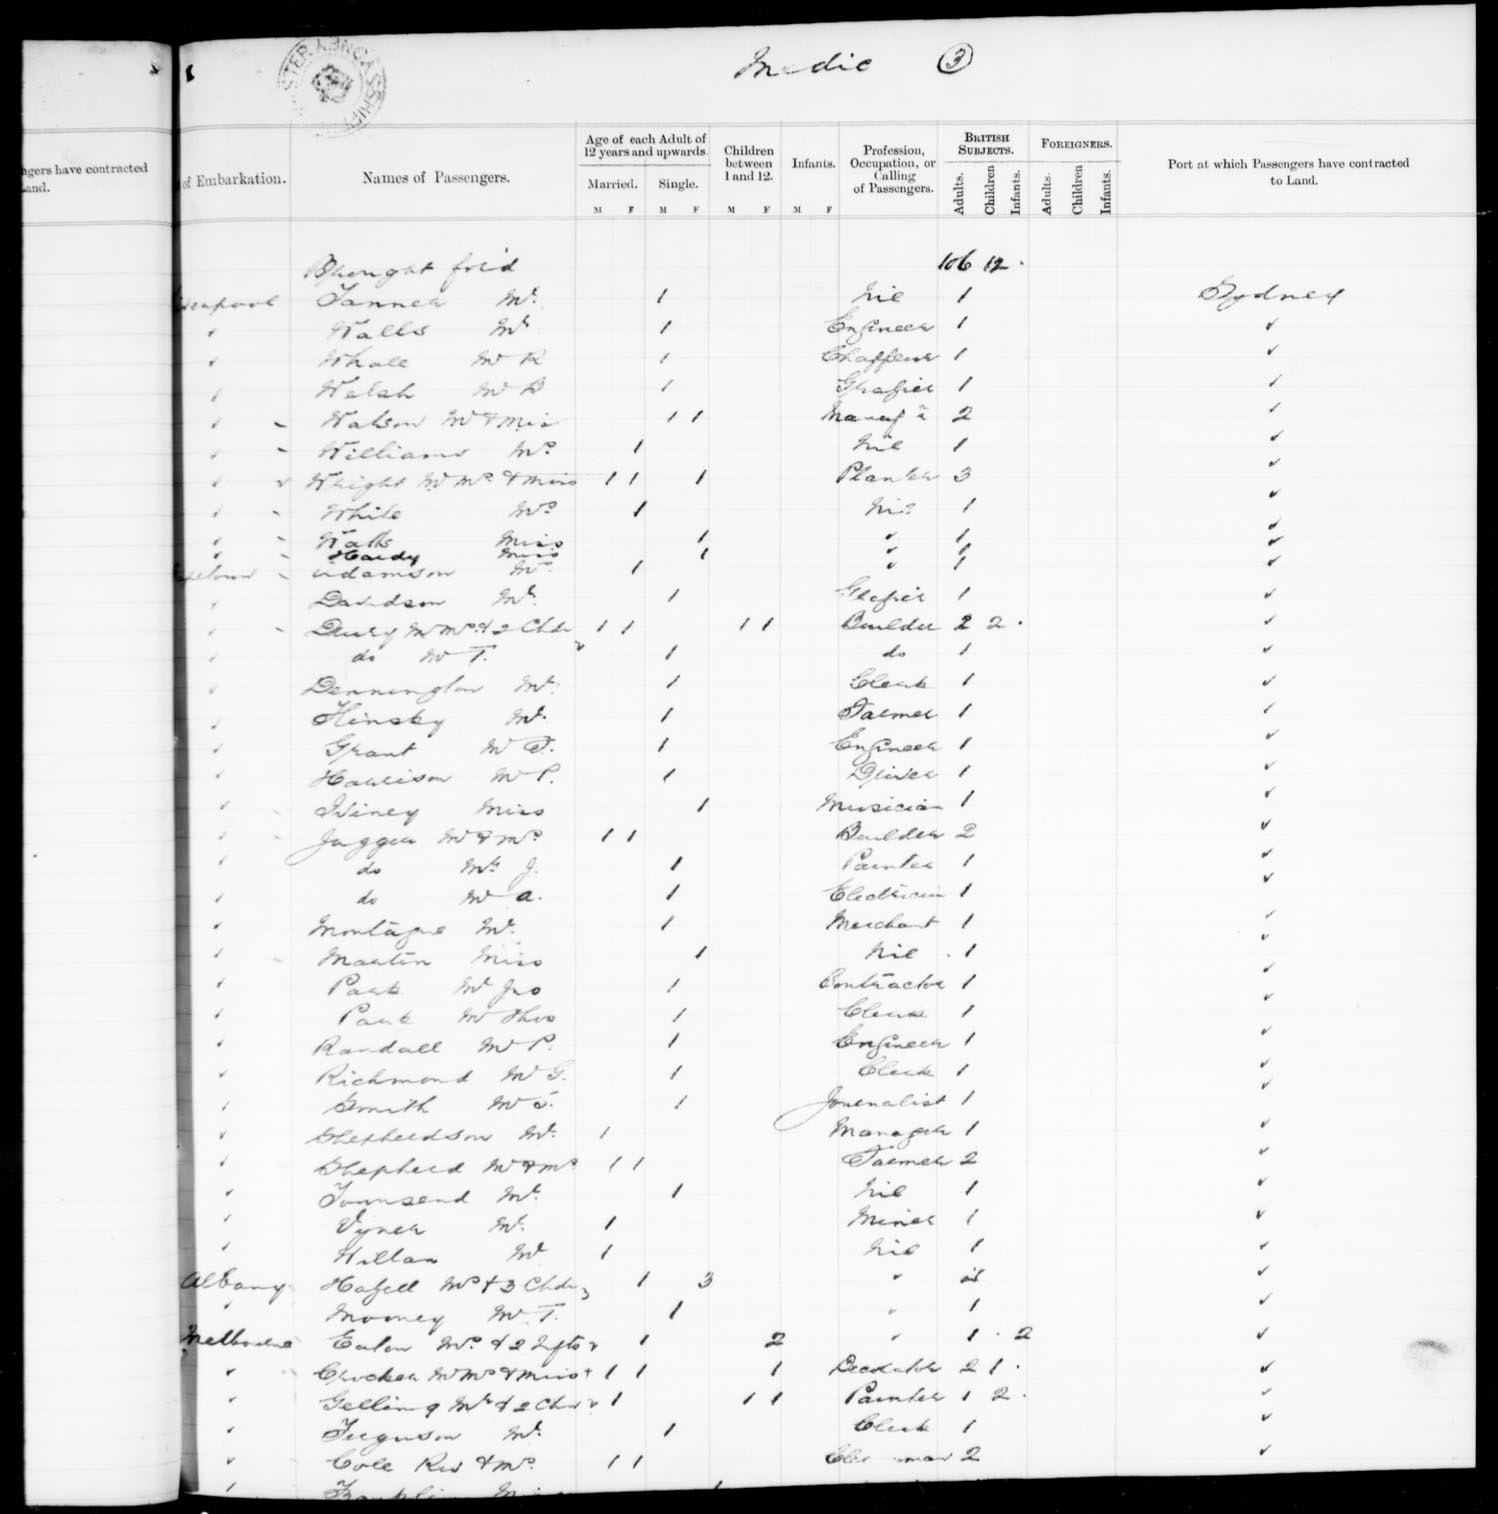 Medic 3
gers have contracted
and.
of Embarkation.
Names of Passengers.
Age of each Adult of
12 years and upwards.
Married. Single.
M F M F
Children
between
1 and 12.
M F
Infants.
M F
Profession,
Occupation, or
Calling
of Passengers.
BRITISH
SUBJECTS.
Adults. Children Infants.
FOREIGNERS.
Adults. Children Infants.
Port at which Passengers have contracted
to Land.
Brought for'd 106 12
Tanner Mr. 1 Nil 1 Sydney
Walls Mr 1 Engineer 1
Whale Mr R 1 Chaffeur 1
Welsh Mr B 1 Grazier 1
Watson Mr & Miss 1 1 2
Williams Mrs 1 Nil 1
Wright Mr Mrs & Miss 1 1 1 Planter 3
White Mrs 1 Nil 1
Watts Miss 1 1
Hardy Miss 1 1
Adamson Mrs 1 1
Davidson Mr. 1 1
Drury Mr Mrs & 2 Chdn 1 1 1 1 Builder 2 2
do Mr T. 1 do 1
Dennington Mr. 1 Clerk 1
Hinsby Mr. 1 Farmer 1
Grant Mr 1 Engineer 1
Harrison Mr P. 1 Driver 1
Miss 1 Musician 1
Jagger Mr & Mrs 1 1 Builder 2
do Mr J. 1 Painter 1
do Mr A. 1 Electrician 1
Montague Mr. 1 Merchant 1
Martin Miss 1 Nil 1
Park Mr Jno 1 Contractor 1
Park Mr Thos 1 Clerk 1
Randall Mr P. 1 Engineer 1
Richmond Mr G. 1 Clerk 1
Smith Mr S. 1 Journalist 1
Shepherdson Mr. 1 Manager 1
Shepherd Mr & Mrs 1 1 Farmer 2
Townsend Mr. 1 Nil 1
Vyner Mr. 1 Miner 1
Mr 1 Nil 1
Albany Mrs & 3 Chdn 1 3
Mooney Mr T. 1 1
Melbourne Eaton Mrs & 2 Infts 1 2 1 2
Crocker Mr Mrs & Miss 1 1 1 Decorator 2 1
Gelling Mr & 2 Chdn 1 1 1 Painter 1 2
Ferguson Mr. 1 Clerk 1
Cole Rev & Mrs 1 1 2